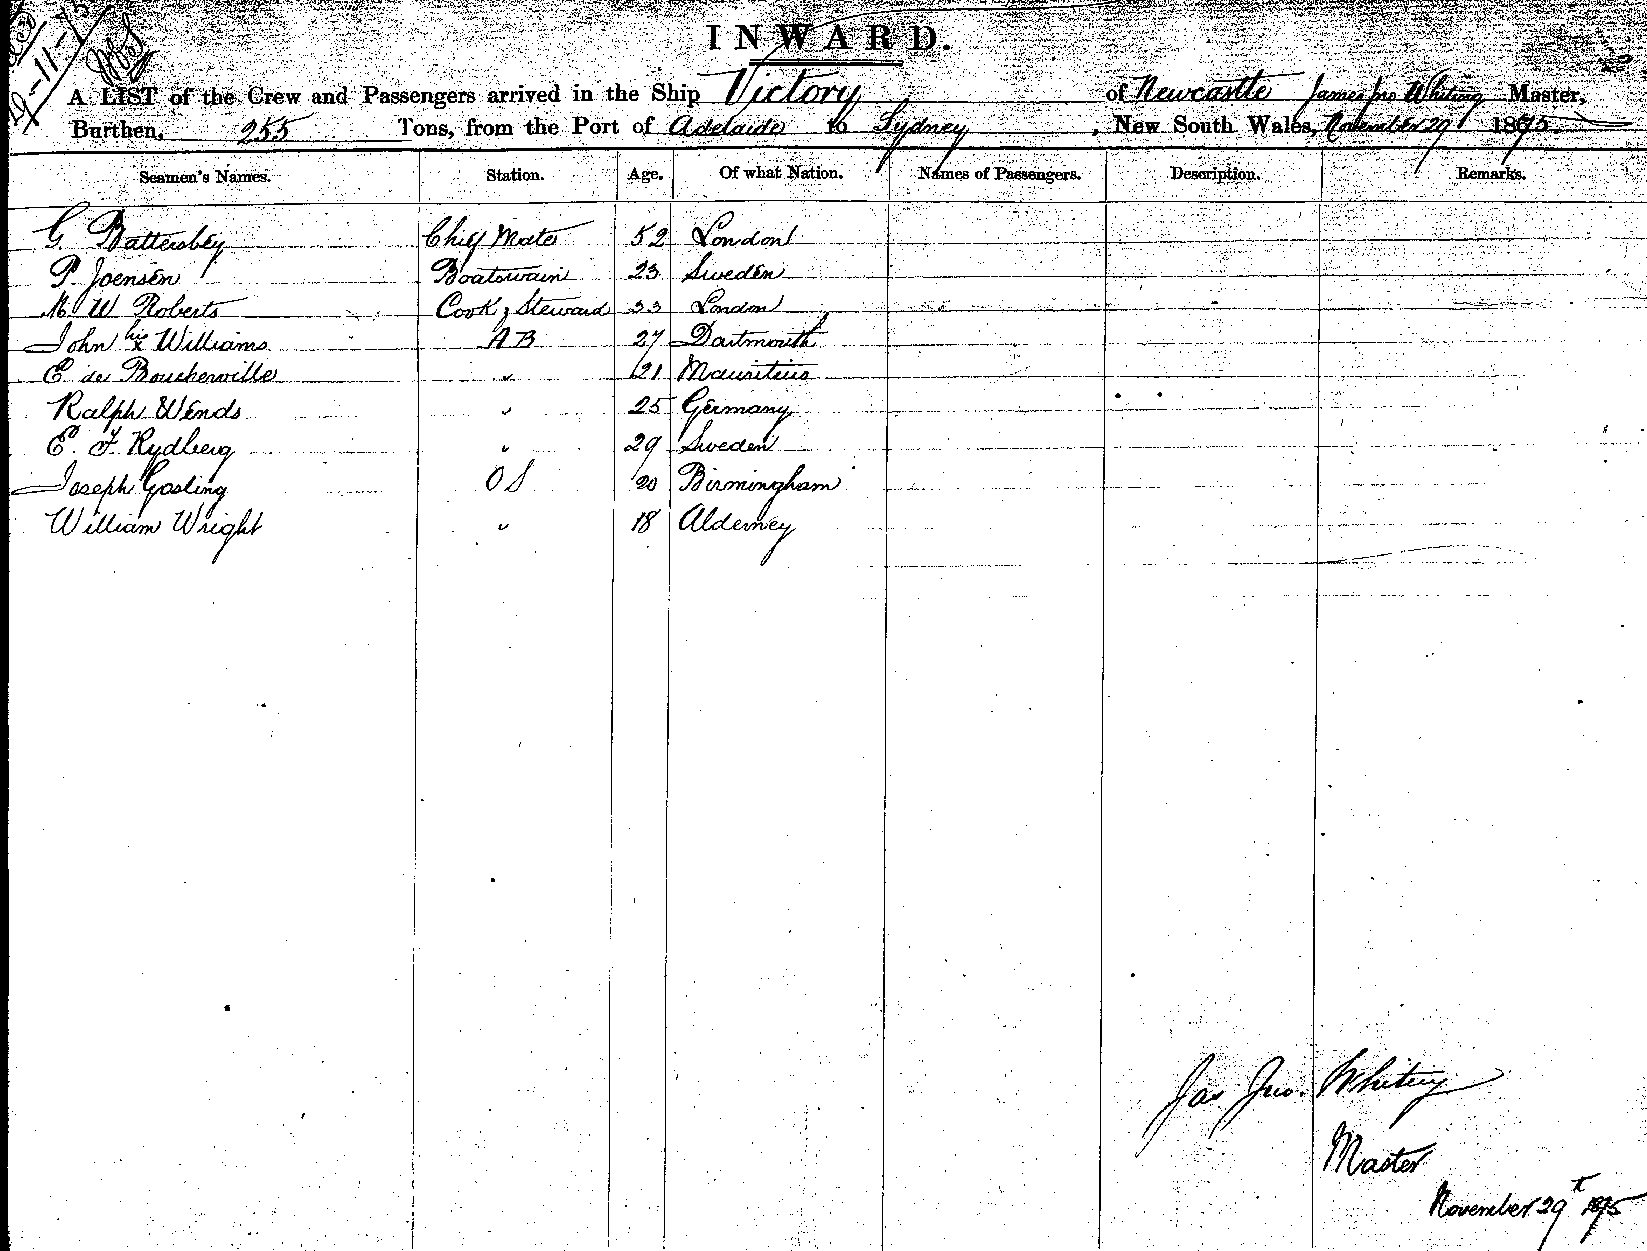 INWARD.
A LIST of the Crew and Passengers arrived in the Ship Victory of Newcastle James Jno Whiting Master,
Burthen, 255 Tons, from the Port of Adelaide to Sydney, New South Wales, November 29 1875
Seamen's Names. Station. Age. Of what Nation. Names of Passengers. Description. Remarks.
G. Battersbey Chief Mate 52 London
P. Joensen Boatswain 23 Sweden
W Roberts Cook & Steward 33 London
John his x Williams AB 27 Dartmouth
E de Boucherville " 21 Mauritius
Ralph Wends " 25 Germany
E. F. Rydberg " 29 Sweden
Joseph Gosling OS 20 Birmingham
William Wright " 18 Alderney
Jas Jno. Whiting
Master
November 29 1875